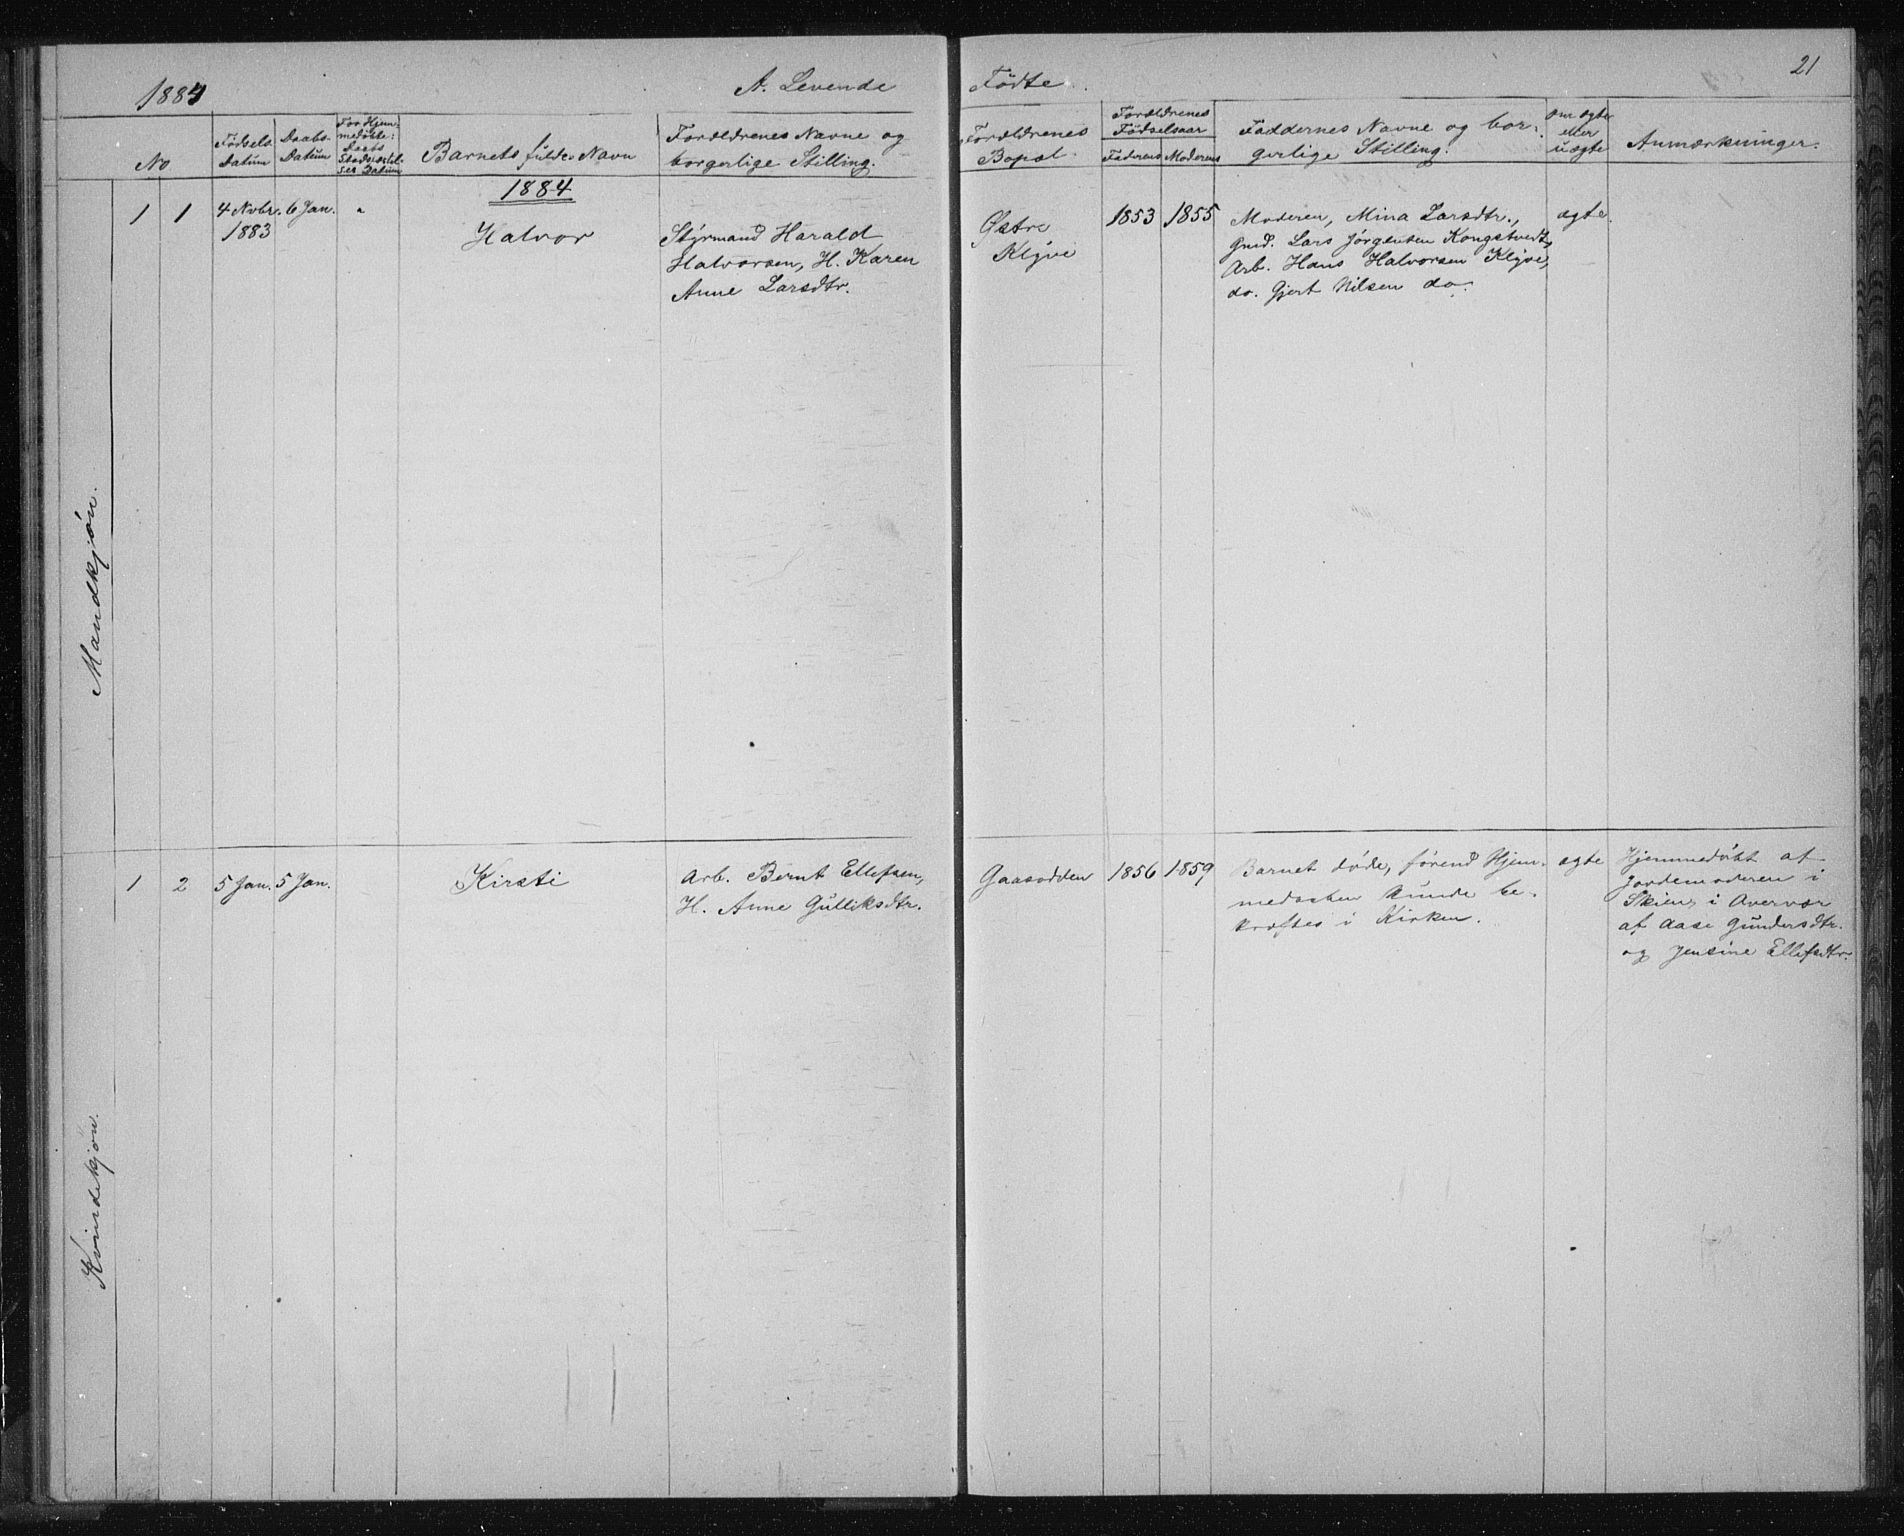 1884
A. Levende
Födte.
21
No
Födsels-
Datum
Daabs-
Datum
For Hjem-
medöbte:
Daabs
Stadfæstel-
ses Datum
Barnets fulde Navn
Forældrenes Navne og
borgerlige Stilling.
Forældrenes
Bopæl.
Forældrenes
Födselsaar
Faderens Moderens
Faddernes Navne og bor-
gerlige Stilling.
Om ægte
eller
uægte
Anmærkninger.
Mandkjön.
1884
1 1 4 Nvbr. 6 Jan. "
1883
Halvor
Styrmand Harald
Halvorsen, H. Karen
Anne Larsdtr.
Østre
Klyve
1853 1855
Moderen, Mina Larsdtr.,
Gmd. Lars Jørgensen Kongstvedt,
Arb. Hans Halvorsen Klyve,
do. Gjert Nilsen do.
ægte
Kvindekjön.
1 2 5 Jan. 5 Jan.
Kirsti
Arb. Bernt Ellefsen,
H. Anne Gulliksdtr.
Gaasodden
1856 1859
Barnet døde, førend Hjem-
medaaben kunde be-
kræftes i Kirken.
ægte
Hjemmedøbt af
Jordemoderen i
Skien, i Overvær
af Aase Gundersdtr.
og Jensine Ellefsdtr.